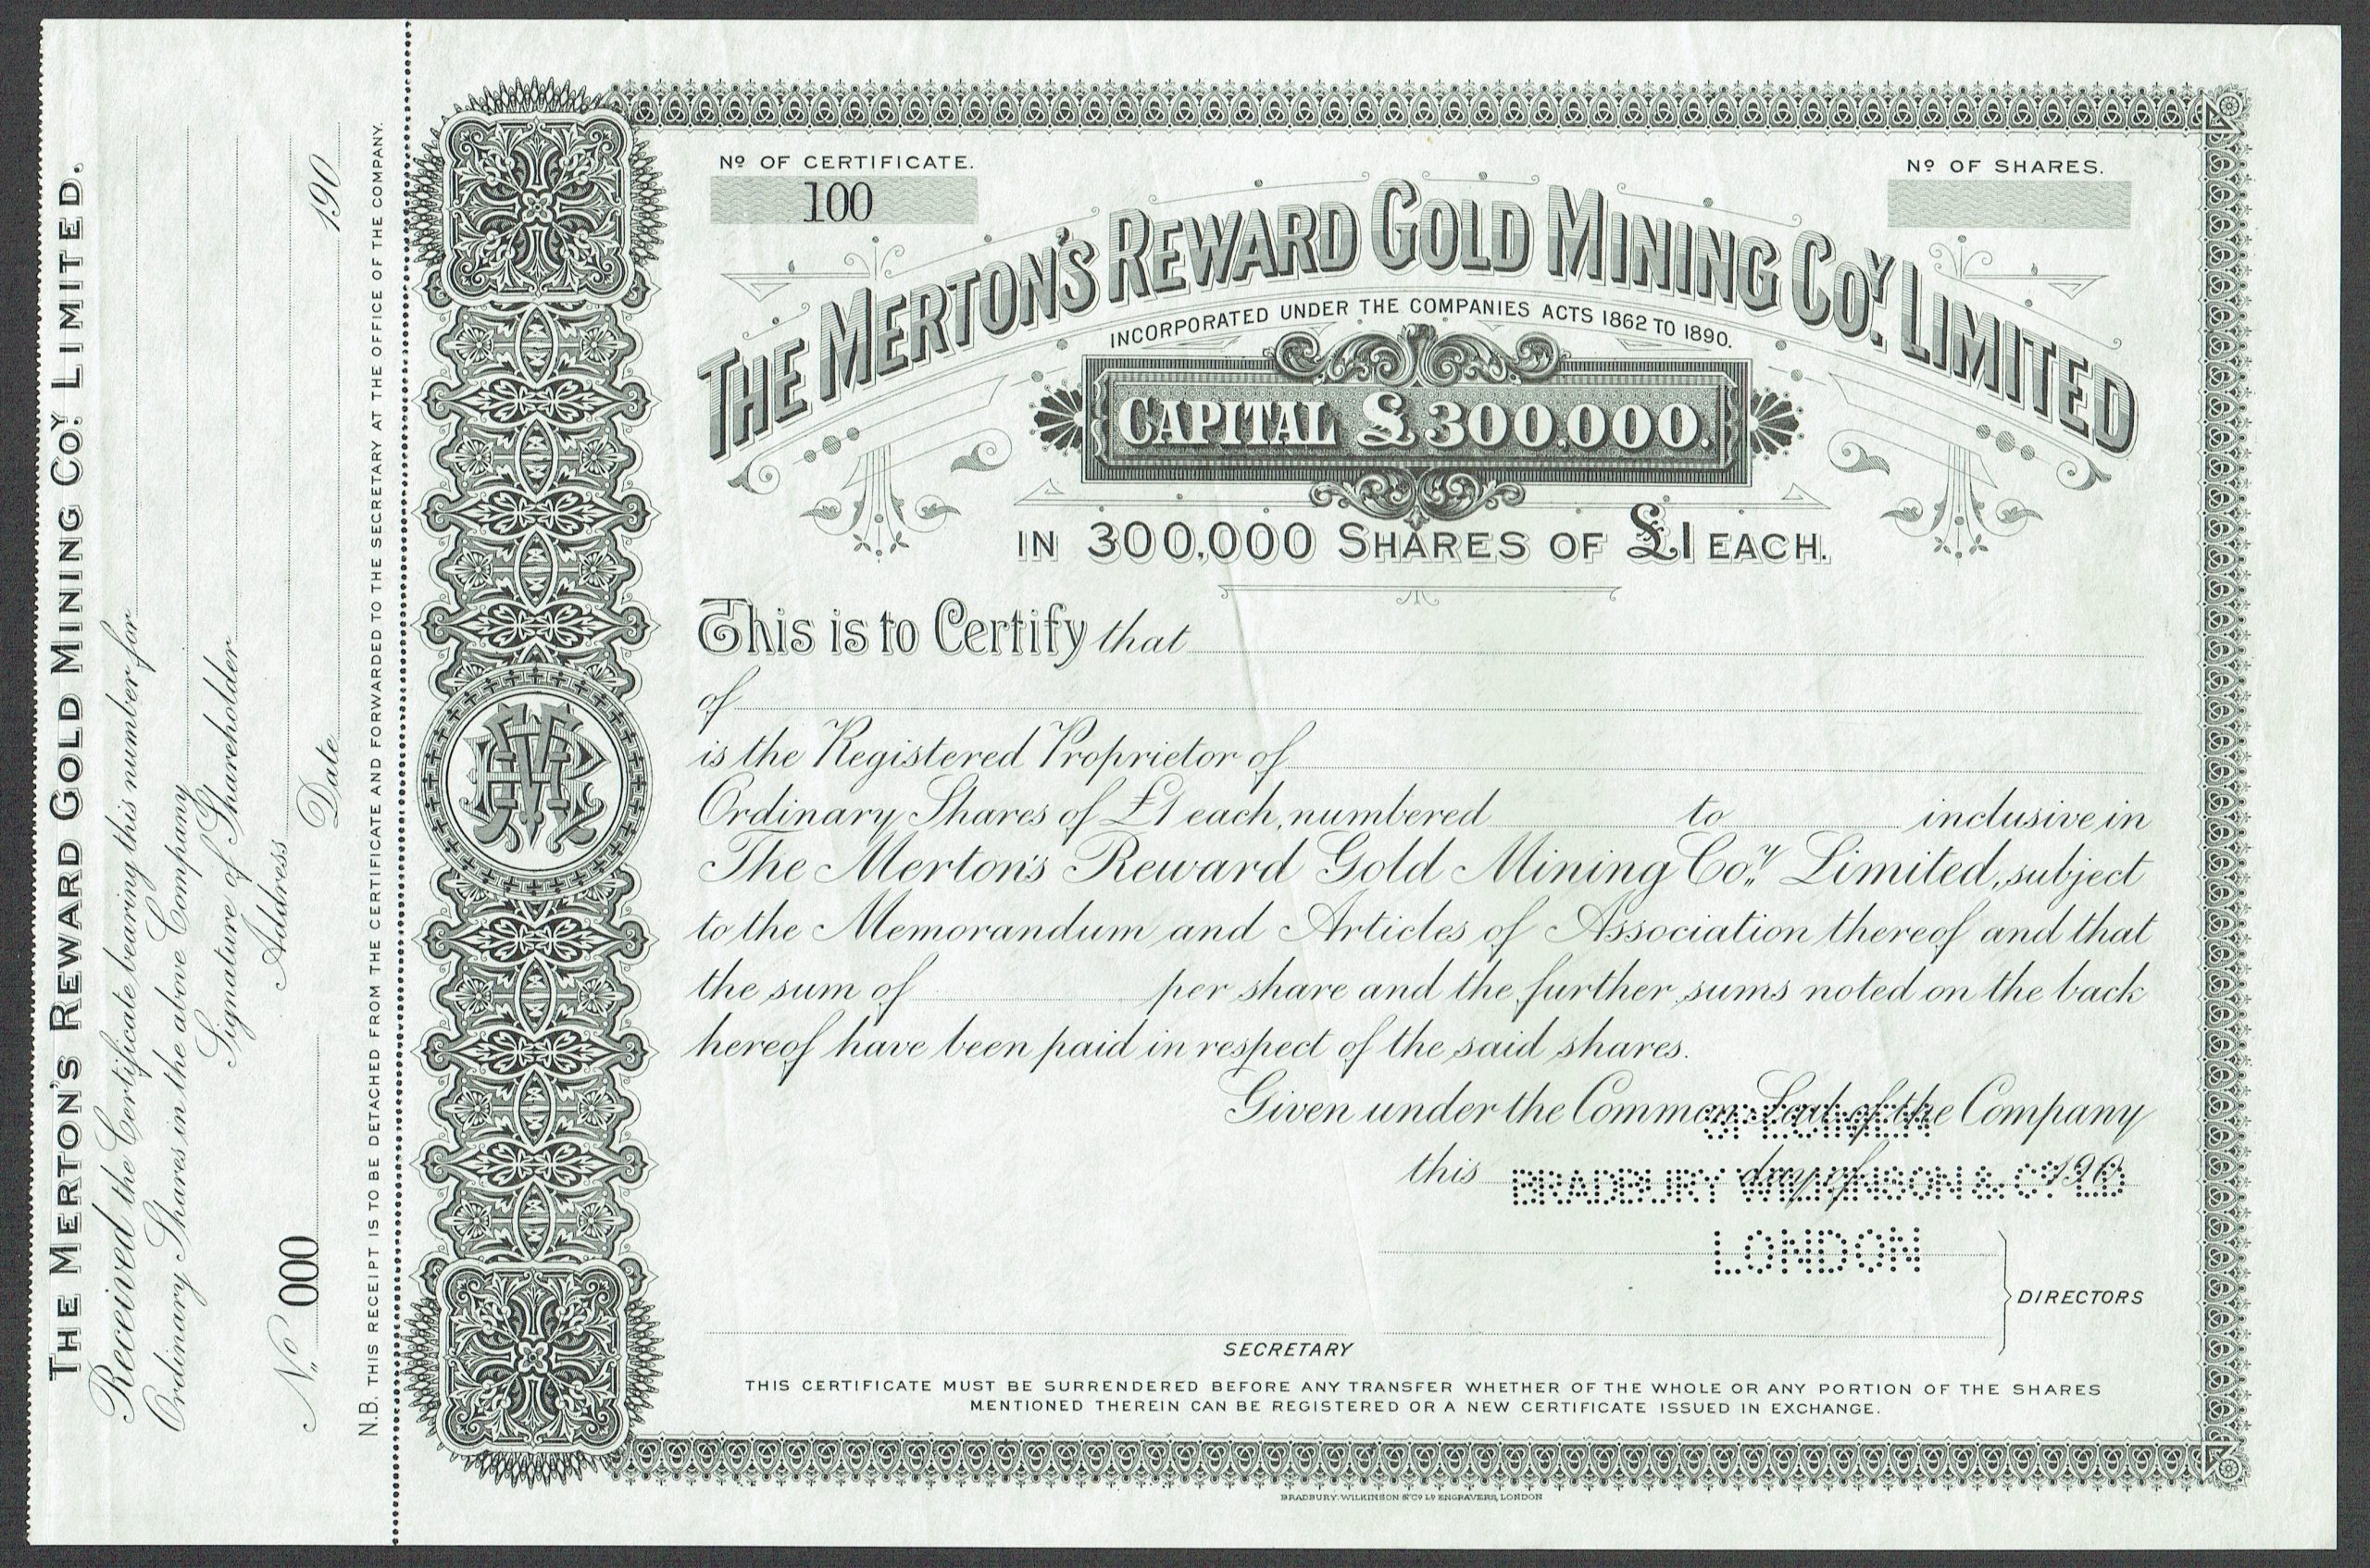 THE MERTON'S REWARD GOLD MINING COY. LIMITED.
Received the Certificate bearing this number for
Ordinary Shares in the above Company
Signature of Shareholder
Address
No. 000 Date 190
N.B. THIS RECEIPT IS TO BE DETACHED FROM THE CERTIFICATE AND FORWARDED TO THE SECRETARY AT THE OFFICE OF THE COMPANY.
No OF CERTIFICATE.
100
No OF SHARES.
THE MERTON'S REWARD GOLD MINING COY. LIMITED
INCORPORATED UNDER THE COMPANIES ACTS 1862 TO 1890.
CAPITAL £300,000.
IN 300,000 SHARES OF £1 EACH.
This is to Certify that
of
is the Registered Proprietor of
Ordinary Shares of £1 each, numbered to inclusive in
The Merton's Reward Gold Mining Coy. Limited, subject
to the Memorandum and Articles of Association thereof and that
the sum of per share and the further sums noted on the back
hereof have been paid in respect of the said shares.
Given under the Common Seal of the Company
SPECIMEN
this day of 190
BRADBURY WILKINSON & CO. LD
LONDON
DIRECTORS
SECRETARY
THIS CERTIFICATE MUST BE SURRENDERED BEFORE ANY TRANSFER WHETHER OF THE WHOLE OR ANY PORTION OF THE SHARES
MENTIONED THEREIN CAN BE REGISTERED OR A NEW CERTIFICATE ISSUED IN EXCHANGE.
BRADBURY, WILKINSON & Co Ld ENGRAVERS, LONDON